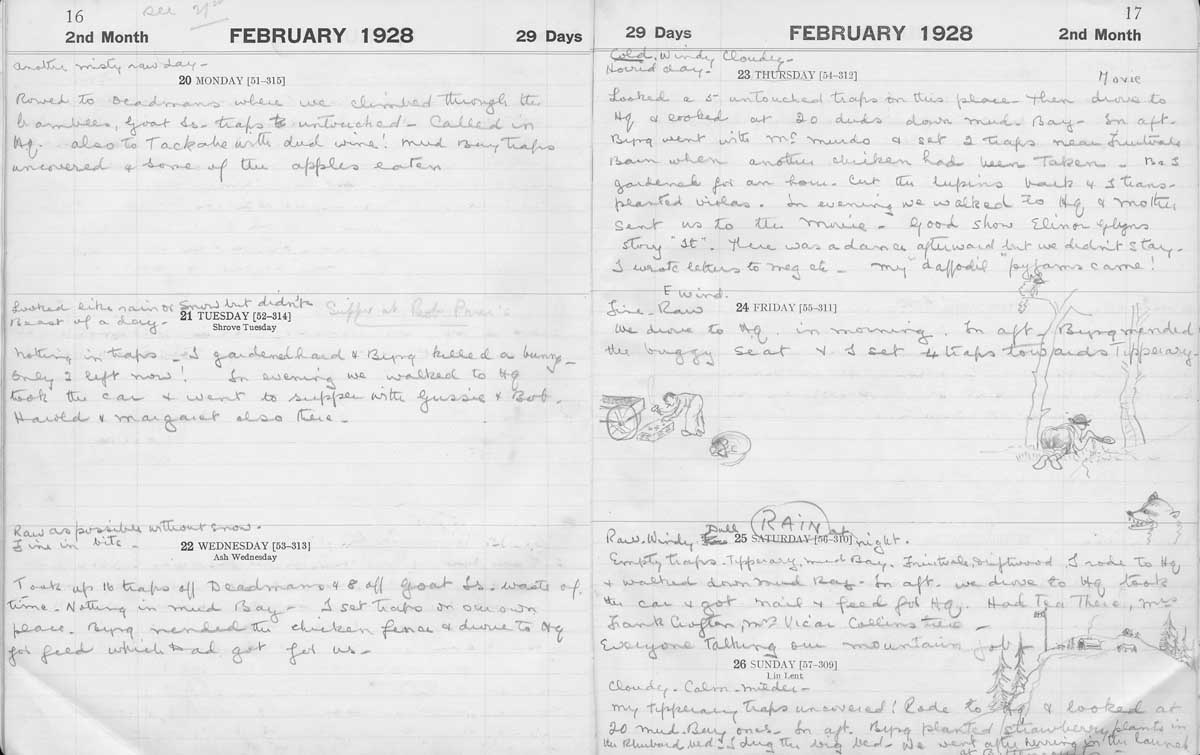 16
2nd Month
FEBRUARY 1928
29 Days
Another misty raw day -
20 MONDAY [51-315]
Rowed to Deadmans where we climbed through the
brambles, Goat Is. traps untouched - Called in
Hq. also to Tackabe with dud wine! Mud Bay traps
uncovered & some of the apples eaten
Looked like rain or snow but didn't
Beast of a day -
21 TUESDAY [52-314]
Shrove Tuesday
Supper at Bob
Nothing in traps - I gardened hard & Byng killed a bunny -
Only 2 left now! In evening we walked to Hq
took the car & went to supper with Gussie & Bob.
Harold & Margaret also there -
Raw as possible without snow.
Fine in bits -
22 WEDNESDAY [53-313]
Ash Wednesday
Took up 16 traps off Deadmans & 8 off Goat Is. waste of
time. Nothing in Mud Bay - I set traps on our own
place. Byng mended the chicken fence & drove to Hq
for feed which Dad got for us -
29 Days
FEBRUARY 1928
17
2nd Month
Cold. Windy Cloudy -
Horrid day -
23 THURSDAY [54-312]
Movie
Looked a 5 untouched traps on this place - Then drove to
Hq & looked at 20 duds down Mud Bay - In aft.
Byng went with Mr Murdo & set 2 traps near Fruitvale
Barn when another chicken had been taken - B & I
gardened for an hour. Cut the lupins back & I trans-
planted violas. In evening we walked to Hq & Mother
sent us to the Movie - Good show Elinor Glyns
story "It". There was a dance afterward but we didn't stay -
I wrote letters to Meg etc - My "daffodil" pyjams came!
E Wind.
Fine - Raw
24 FRIDAY [55-311]
We drove to Hq. in morning. In aft - Byng mended
the buggy seat & I set 4 traps towards Tipperary
Raw. Windy Dull RAIN at night.
25 SATURDAY [56-310]
Empty traps - Tipperary, Mud Bay, Fruitvale, Driftwood I rode to Hq
& walked down Mud Bay - In aft. we drove to Hq took
the car & got mail & feed for Hq. Had Tea There, Mrs
Frank Crofton, Mrs Vicar Collins there -
Everyone Talking our mountain job
26 SUNDAY [57-309]
1 in Lent
Cloudy - Calm - Milder -
My tipperary traps uncovered! Rode to Hq & looked at
20 Mud Bay ones - In aft. Byng planted strawberry plants in
the Rhubarb bed - I dug the big bed - We went after herring in the launch